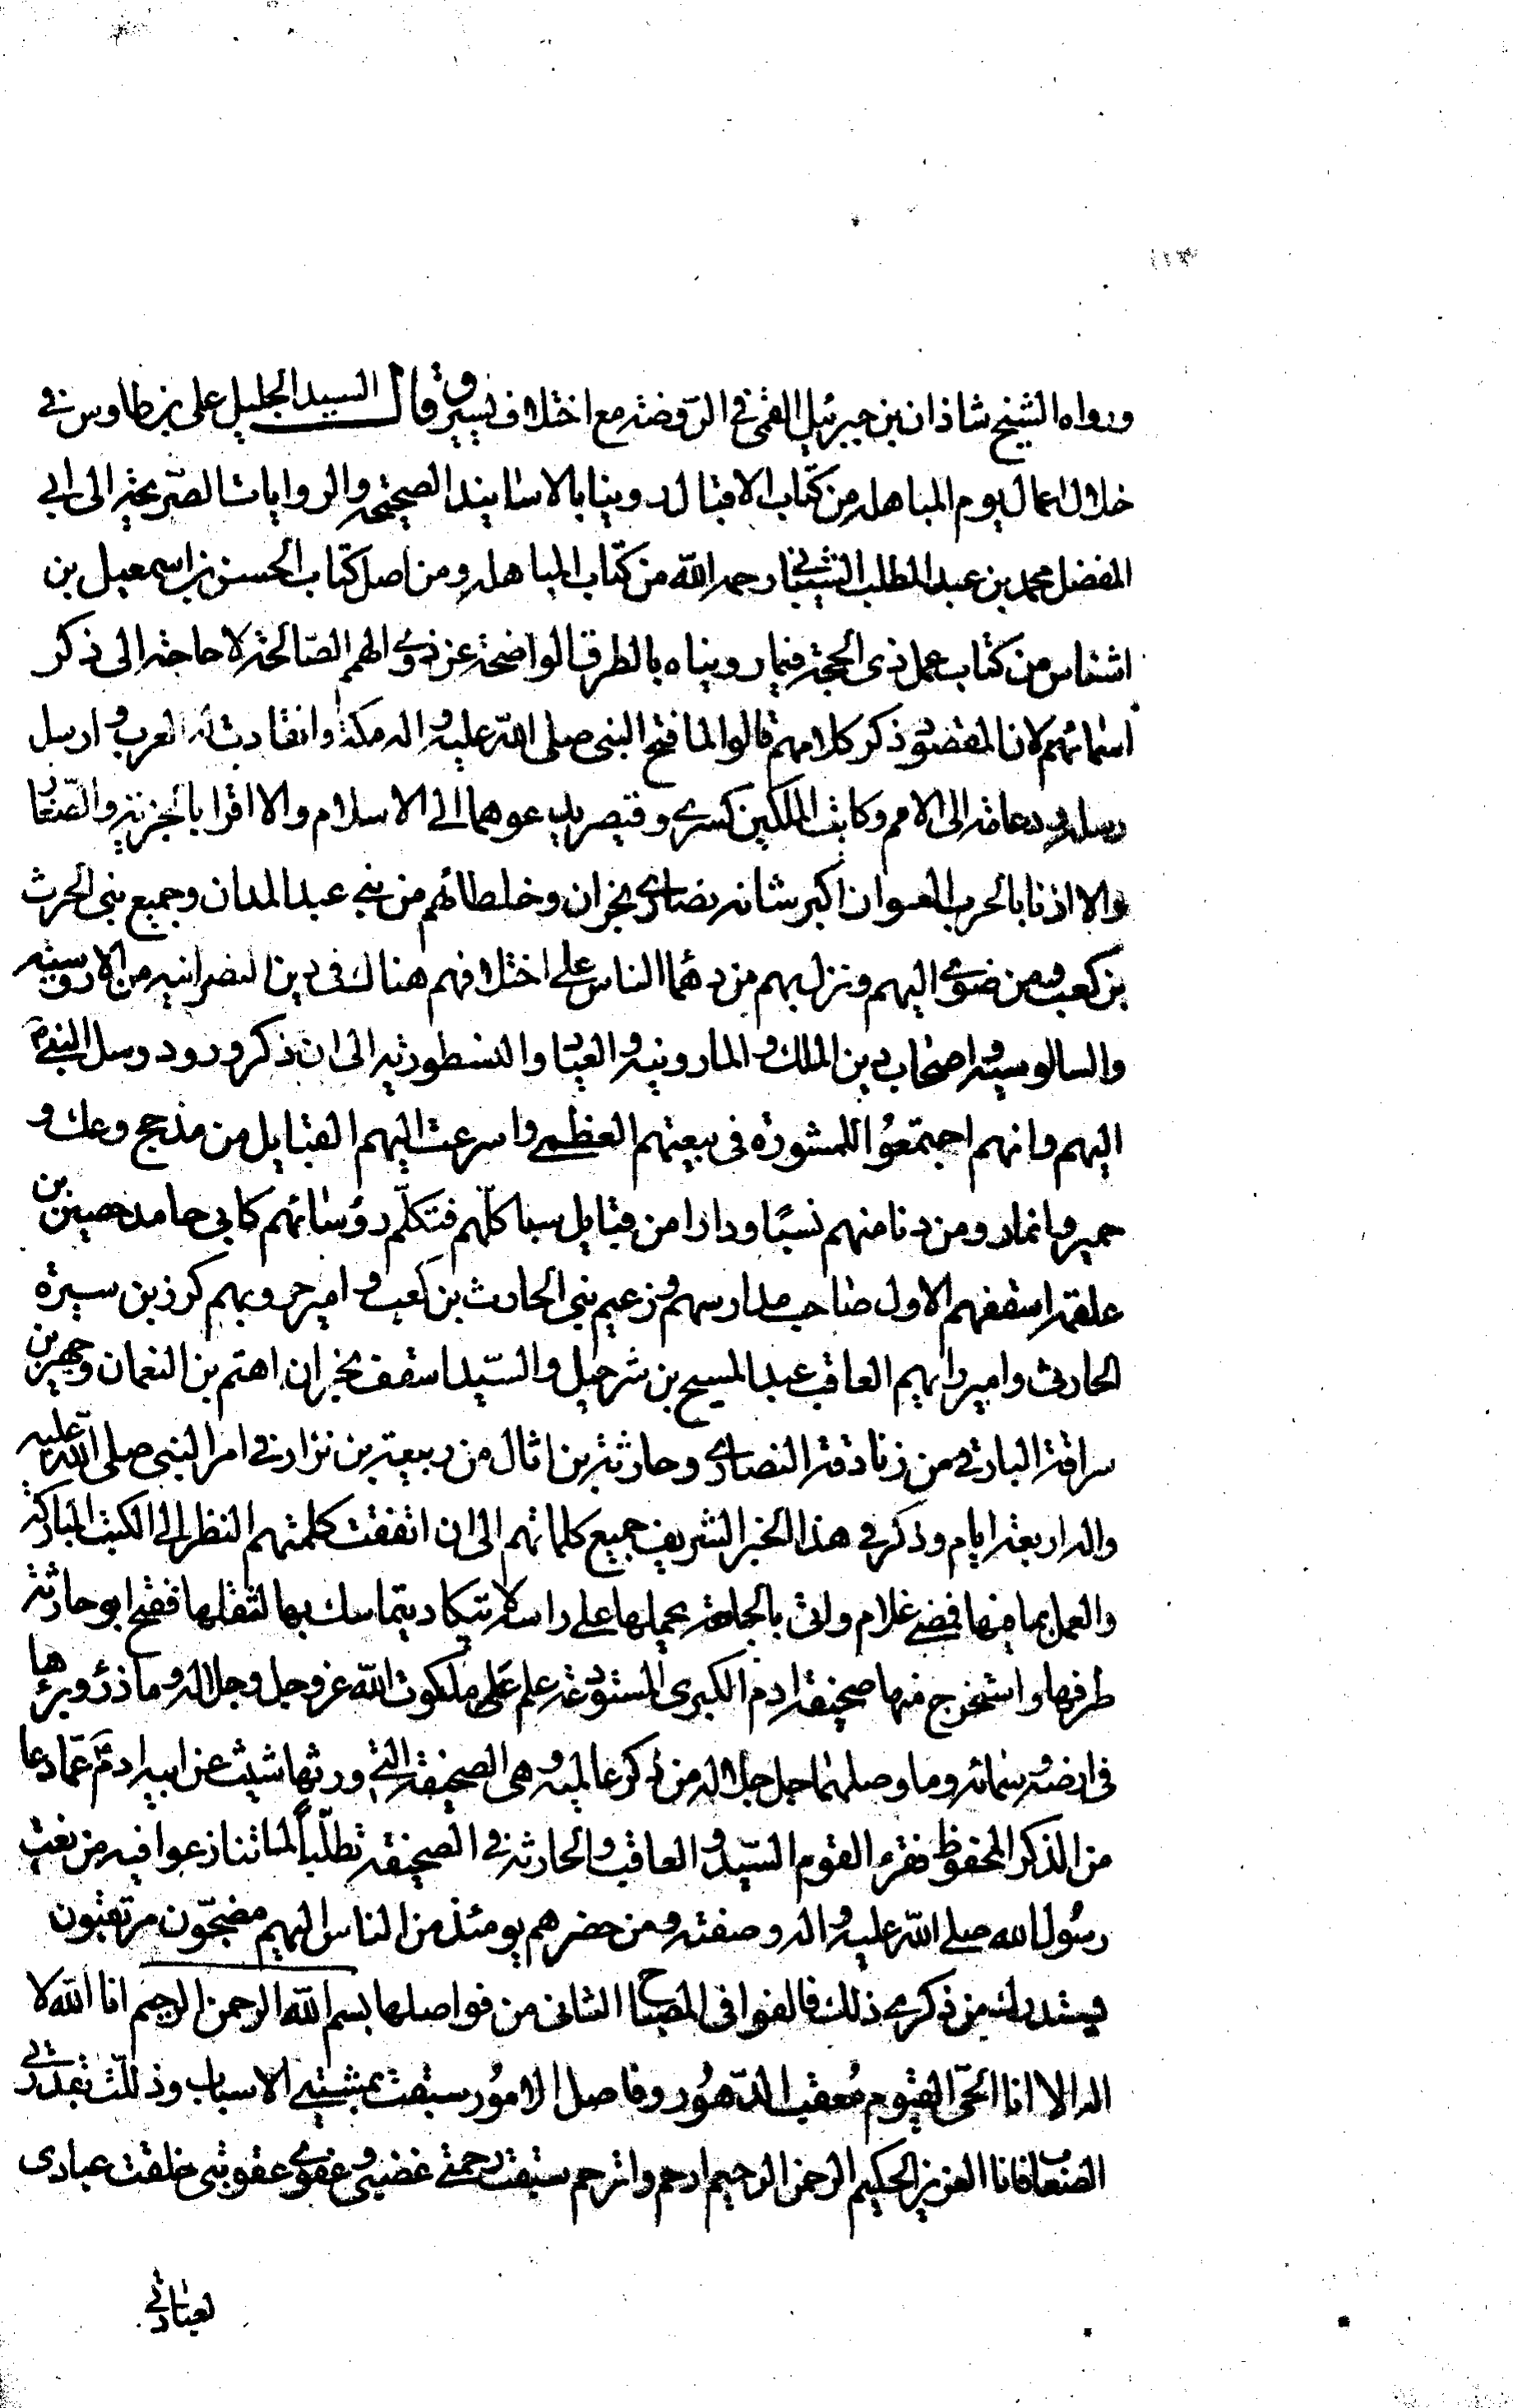 ورواه الشيخ شاذان بن جبرئيل القمي في الروضة مع اختلاف يسير وقال السيد الجليل علي بن طاوس في
خلال اعمال يوم المباهله من كتاب الاقبال روينا بالاسانيد الصحيحة والروايات الصريحة الى ابي
المفضل محمد بن عبد المطلب الشيباني رحمه الله من كتاب المباهله ومن اصل كتاب الحسن بن اسمعيل بن
اشناس من كتاب عمل ذي الحجة فيما رويناه بالطرق الواضحة عن ذوي الهمم الصالحة لا حاجة الى ذكر
اسمائهم لان المقصود ذكر كلامهم قالوا لما فتح النبي صلى الله عليه واله مكة وانقادت له العرب وارسل
رسله ودعاته الى الامم وكاتب الملكين كسرى وقيصر يدعوهما الى الاسلام والا اقرا بالجزية والصغار
والا اذنا بالحرب العوان اكبر شانه نصارى نجران وخلطائهم من بني عبد المدان وجميع بني الحرث
بن كعب ومن ضوى اليهم ونزل بهم من دهماء الناس على اختلافهم هناك في دين النصرانيه من الاروسيه
والسالوسيه واصحاب دين الملك والمارونيه والعباد والنسطوريه الى ان ذكر ورود رسل النبي ص
اليهم وانهم اجتمعوا للمشورة في بيعتهم العظمى واسرعت اليهم القبايل من مذحج وعك و
حمير وانمار ومن دنا منهم نسبا ودارا من قبايل سبا كلهم فتكلم رؤسائهم كابي حامد حصين بن
علقمة اسقفهم الاول صاحب مدارسهم وزعيم بني الحارث بن كعب وامير حروبهم كرز بن سيرة
الحارثي وامير رايهم العاقب عبد المسيح بن شرحبيل والسيد اسقف نجران اهتم بن النعمان وجهير بن
سراقة البارقي من زنادقة النصارى وحارثة بن اثال من ربيعة بن نزار في امر النبي صلى الله عليه
واله اربعة ايام وذكر في هذا الخبر الشريف جميع كلماتهم الى ان اتفقت كلمتهم النظر الى الكتب المباركة
والعمل بما فيها فمضى غلام واتى بالجامعة يحملها على راسه لا يكاد يتماسك بها لثقلها ففتح ابو حارثة
طرفها واستخرج منها صحيفة ادم الكبرى المستودعة علم على ملكوت الله عز وجل وجلاله وما ذرء وبرء ها
في ارضه وسمائه وما وصلهما جل جلاله من ذكر عالميه وهي الصحيفة التي ورثها شيث عن ابيه ادم ع عما دعا
من الذكر المحفوظ فقرء القوم السيد والعاقب والحارثة في الصحيفة تطلبا لما تنازعوا فيه من نعت
رسول الله صلى الله عليه واله وصفته ومن حضرهم يومئذ من الناس اليهم مضجون مرتقبون
يستدرك من ذكرى ذلك فالفوا في المصباح الثاني من فواصلها بسم الله الرحمن الرحيم انا الله لا
اله الا انا الحي القيوم معقب الدهور وفاصل الامور سبقت بمشيتي الاسباب وذللت بقدرتي
الصعاب فانا العزيز الحكيم الرحمن الرحيم ارحم واترحم سبقت رحمتي غضبي وعفوي عقوبتي خلقت عبادي
لعبادتي